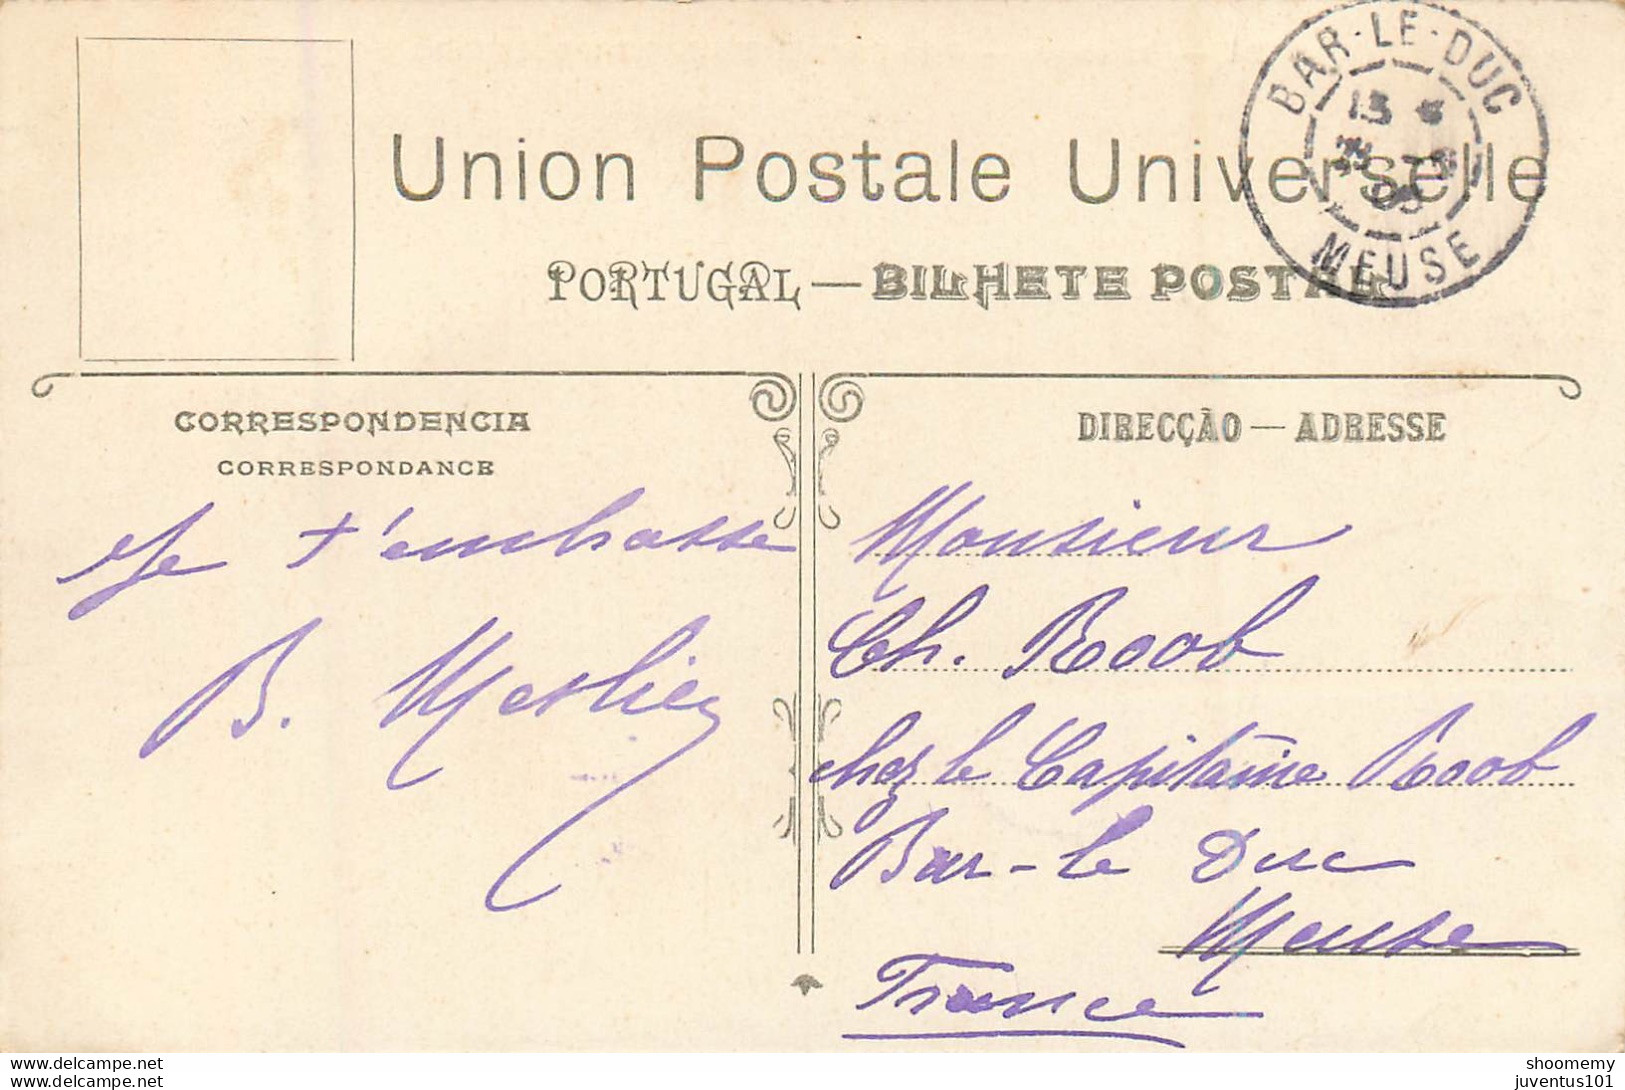 BAR-LE-DUC
13
MEUSE
Union Postale Universelle
PORTUGAL — BILHETE POSTAL
CORRESPONDENCIA
CORRESPONDANCE
Je t'embrasse
B.
DIRECÇÃO — ADRESSE
Monsieur
Ch. Roob
chez le Capitaine Roob
Bar-le Duc
Meuse
France
www.delcampe.net
www.delcampe.net
shoomemy
juventus101